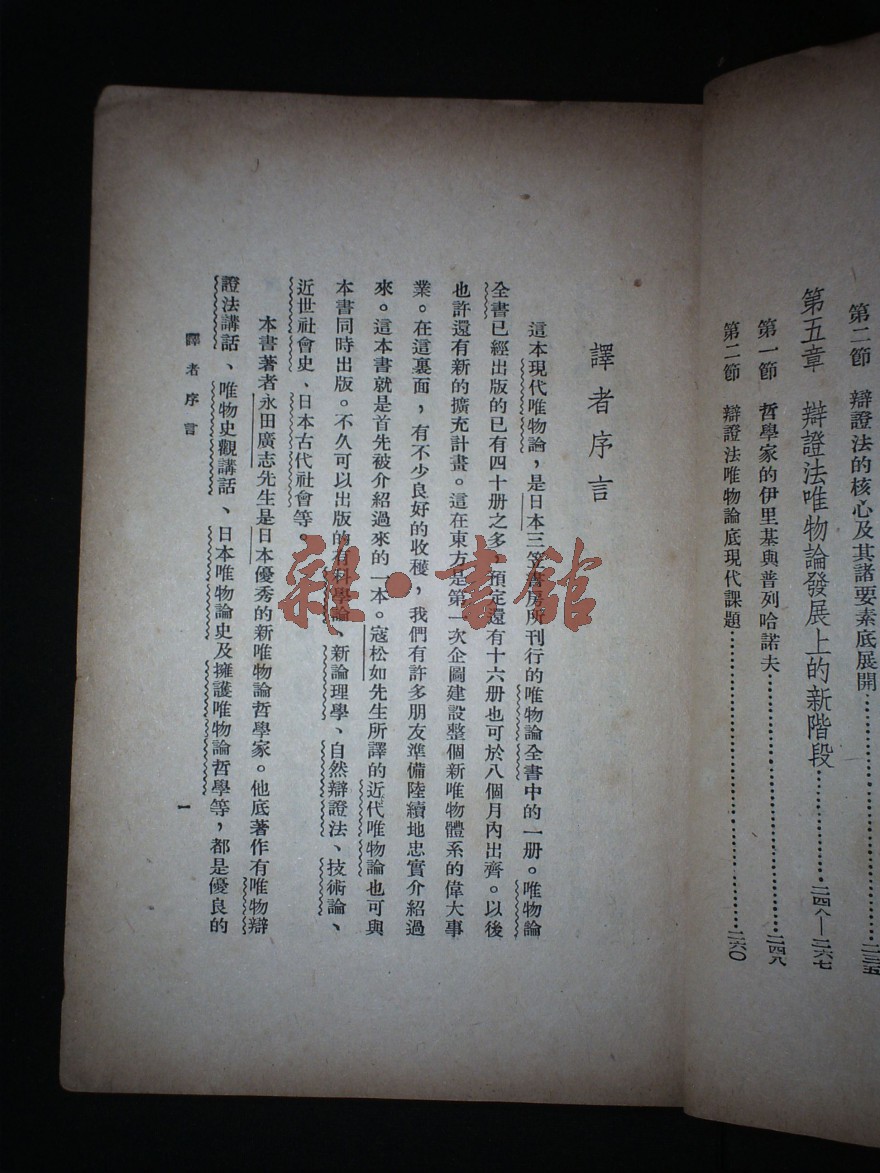 第二節 辯證法的核心及其諸要素底展開…………二三五
第五章 辯證法唯物論發展上的新階段…………二四八—二六七
第一節 哲學家的伊里基與普列哈諾夫…………二四八
第二節 辯證法唯物論底現代課題…………二六〇
譯者序言
這本現代唯物論，是日本三笠書房所刊行的唯物論全書中的一册。唯物論
全書已經出版的已有四十册之多，預定還有十六册也可於八個月內出齊。以後
也許還有新的擴充計畫。這在東方是第一次企圖建設整個新唯物體系的偉大事
業。在這裏面，有不少良好的收穫，我們有許多朋友準備陸續地忠實介紹過
來。這本書就是首先被介紹過來的一本。寇松如先生所譯的近代唯物論也可與
本書同時出版。不久可以出版的有科學論、新論理學、自然辯證法、技術論、
近世社會史、日本古代社會等。
本書著者永田廣志先生是日本優秀的新唯物論哲學家。他底著作有唯物辯
證法講話、唯物史觀講話、日本唯物論史及擁護唯物論哲學等，都是優良的
譯者序言
一
雜·書館